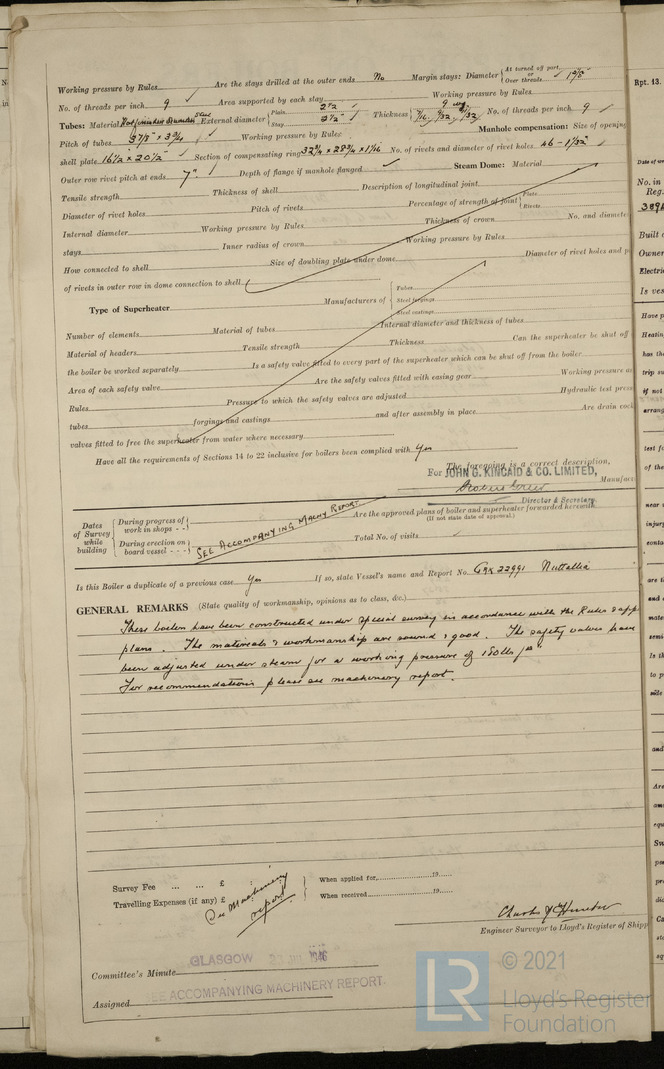 Working pressure by Rules Are the stays drilled at the outer ends No Margin stays: Diameter { At turned off part, or Over threads 1 5/8"
No. of threads per inch 9 Area supported by each stay Working pressure by Rules
Tubes: Material External diameter { Plain 2½ Stay 2½" Thickness { 9 wg 7/16, 9/32, 9/32 No. of threads per inch 9
Pitch of tubes 3 7/8 × 3 3/4 Working pressure by Rules Manhole compensation: Size of opening
shell plate 16½ × 20½" Section of compensating ring 32¾ × 28¾ × 1 1/16 No. of rivets and diameter of rivet holes 46 - 1 1/32"
Outer row rivet pitch at ends 7" Depth of flange if manhole flanged Steam Dome: Material
Tensile strength Thickness of shell Description of longitudinal joint
Diameter of rivet holes Pitch of rivets Percentage of strength of joint { Plate Rivets
Internal diameter Working pressure by Rules Thickness of crown No. and diamete
stays Inner radius of crown Working pressure by Rules
How connected to shell Size of doubling plate under dome Diameter of rivet holes and p
of rivets in outer row in dome connection to shell
Type of Superheater Manufacturers of { Tubes Steel forgings Steel castings
Number of elements Material of tubes Internal diameter and thickness of tubes
Material of headers Tensile strength Thickness Can the superheater be shut off
the boiler be worked separately Is a safety valve fitted to every part of the superheater which can be shut off from the boiler
Area of each safety valve Are the safety valves fitted with easing gear Working pressure as
Rules Pressure to which the safety valves are adjusted Hydraulic test press
tubes forgings and castings and after assembly in place Are drain cock
valves fitted to free the superheater from water where necessary
Have all the requirements of Sections 14 to 22 inclusive for boilers been complied with Yes
The foregoing is a correct description,
For JOHN G. KINCAID & CO. LIMITED, Manufact
Director & Secretary
Dates of Survey while building { During progress of work in shops - - During erection on board vessel - - - SEE ACCOMPANYING MACHY REPORT. Are the approved plans of boiler and superheater forwarded herewith (If not state date of approval.)
Total No. of visits
Is this Boiler a duplicate of a previous case Yes If so, state Vessel's name and Report No. Grk 22991 Nuttallia
GENERAL REMARKS (State quality of workmanship, opinions as to class, &c.)
These boilers have been constructed under special survey in accordance with the Rules & app
plans. The materials & workmanship are sound & good. The safety valves have
been adjusted under steam for a working pressure of 150 lbs
For recommendations please see machinery report.
Survey Fee ... ... £
Travelling Expenses (if any) £
See Machinery report
When applied for, 19
When received 19
Engineer Surveyor to Lloyd's Register of Shipp
Committee's Minute GLASGOW 1946
Assigned SEE ACCOMPANYING MACHINERY REPORT.
Rpt. 13.
No. in
Reg.
Built
Owner
Electric
Is ves
LR © 2021
Lloyd's Register
Foundation